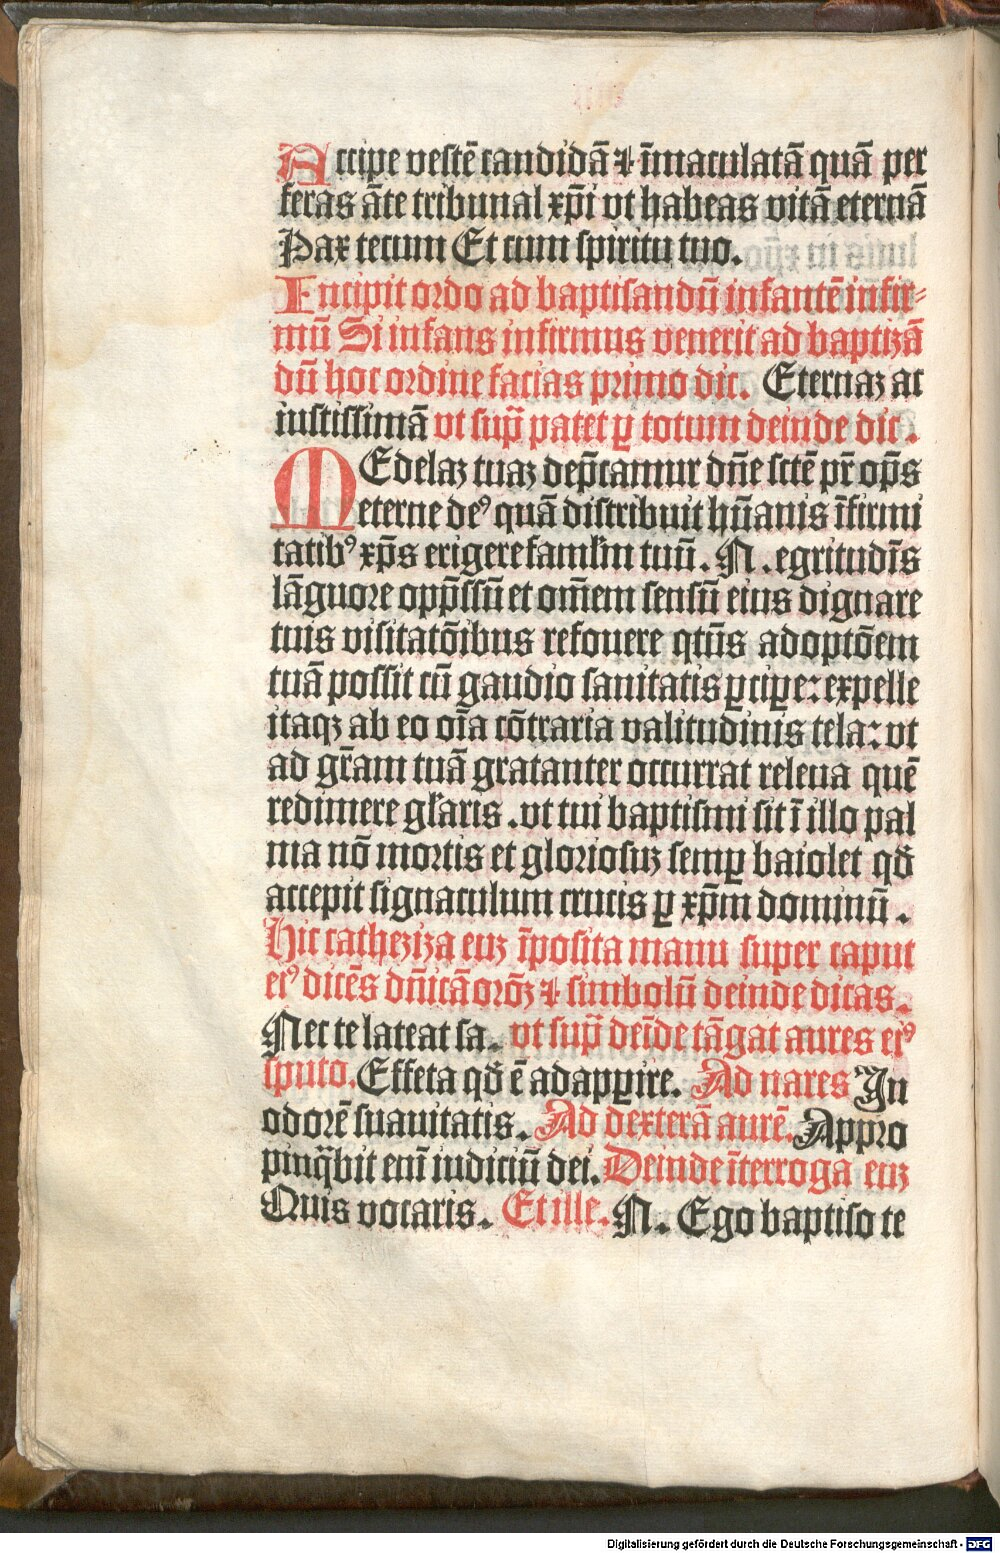 Accipe vestē candidā ⁊ īmaculatā quā per
feras āte tribunal xp̄i vt habeas vitā eternā
Pax tecum Et cum spiritu tuo.
Incipit ordo ad baptisandū infantē infir⸗
mū Si infans infirmus venerit ad baptizā
dū hoc ordine facias primo dic. Eternaꝫ ac
iustissimā vt sup̄ patet ꝑ totum deinde dic.
MEdelaꝫ tuaꝫ dep̄camur dn̄e sctē pr̄ op̄s
eterne deꝰ quā distribuit hūanis īfirmi
tatibꝰ xp̄s erigere famłm tuū. N. egritudīs
lāguore opp̄ssū et om̄em sensū eius dignare
tuis visitatōibus refouere qtūs adoptōem
tuā possit cū gaudio sanitatis ꝑciꝑe: expelle
itaqꝫ ab eo oīa cōtraria valitudinis tela: vt
ad gr̄am tuā gratanter occurrat releua quē
redimere głaris. vt tui baptismi sit ī illo pal
ma nō mortis et gloriosuꝫ semꝑ baiolet qđ
accepit signaculum crucis ꝑ xp̄m dominū.
Hic catheziza euꝫ īposita manu super caput
eiꝰ dicēs dn̄icā orōꝫ ⁊ simbolū deinde dicas.
Nec te lateat sa. vt sup̄ deīde tāgat aures eiꝰ
sputo. Effeta qđ ē adapꝑire. Ad nares In
odorē suauitatis. Ad dexterā aurē. Appro
pinq̄bit eni iudiciū dei. Deinde īterroga euꝫ
Quis vocaris. Et ille. N. Ego baptiso te
Digitalisierung gefördert durch die Deutsche Forschungsgemeinschaft - DFG